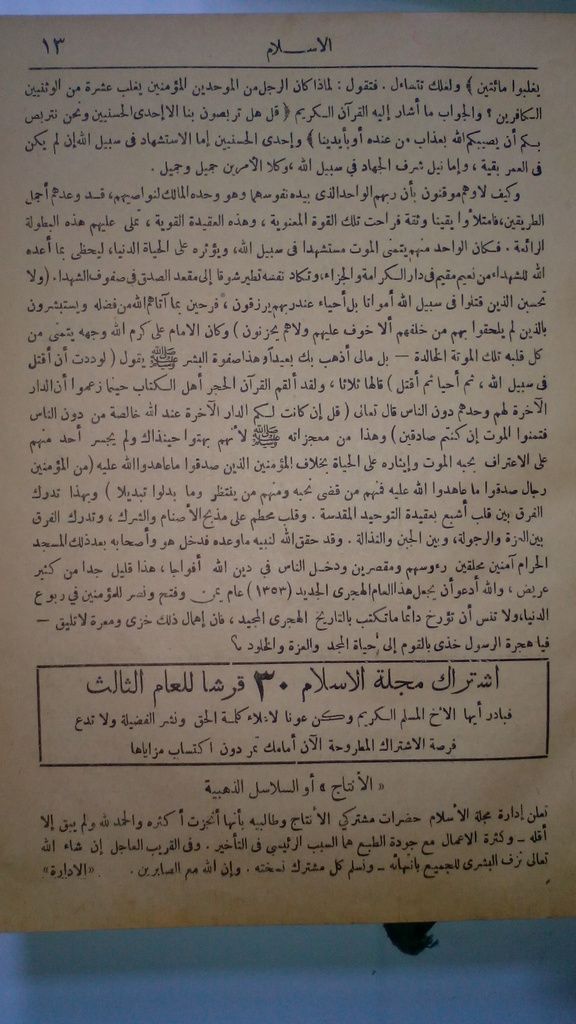 الاسـلام
١٣
يغلبوا مائتين ﴾ ولعلك تتساءل . فتقول : لماذا كان الرجل من الموحدين المؤمنين يغلب عشرة من الوثنيين
الكافرين ؟ والجواب ما أشار إليه القرآن الكريم ﴿ قل هل تربصون بنا إلا إحدى الحسنيين ونحن نتربص
بكم أن يصيبكم الله بعذاب من عنده أو بأيدينا ﴾ وإحدى الحسنيين إما الاستشهاد فى سبيل الله إن لم يكن
فى العمر بقية ، وإما نيل شرف الجهاد فى سبيل الله ، وكلا الأمرين جميل وجميل .
وكيف لا وهم موقنون بأن ربهم الواحد الذى بيده نفوسهما وهو وحده المالك لنواصيهم ، قد وعدهم أجمل
الطريقين ، فامتلأوا يقينا وثقة فراحت تلك القوة المعنوية ، وهذه العقيدة القوية ، تملى عليهم هذه البطولة
الرائعة . فكان الواحد منهم يتمنى الموت مستشهدا فى سبيل الله ، ويؤثره على الحياة الدنيا ، ليحظى بما أعده
الله للشهداء من نعيم مقيم فى دار الكرامة والجزاء ، وتكاد نفسه تطير شوقا إلى مقعد الصدق فى صفوف الشهدا . ( ولا
تحسبن الذين قتلوا فى سبيل الله أمواتا بل أحياء عند ربهم يرزقون ، فرحين بما آتاهم الله من فضله ويستبشرون
بالذين لم يلحقوا بهم من خلفهم ألا خوف عليهم ولا هم يحزنون ) وكان الامام على كرم الله وجهه يتمنى من
كل قلبه تلك الموتة الخالدة — بل مالى أذهب بك بعيداً وهذا صفوة البشر ﷺ يقول ( لوددت أن أقتل
فى سبيل الله ، ثم أحيا ثم أقتل ) قالها ثلاثا ، ولقد ألقم القرآن الحجر أهل الكتاب حينما زعموا أن الدار
الآخرة لهم وحدهم دون الناس قال تعالى ( قل إن كانت لكم الدار الآخرة عند الله خالصة من دون الناس
فتمنوا الموت إن كنتم صادقين ) وهذا من معجزاته ﷺ لأنهم بهتوا حينذاك ولم يجسر أحد منهم
على الاعتراف بحبه الموت وإيثاره على الحياة بخلاف المؤمنين الذين صدقوا ماعاهدوا الله عليه ( من المؤمنين
رجال صدقوا ما عاهدوا الله عليه فمنهم من قضى نحبه ومنهم من ينتظر وما بدلوا تبديلا ) وبهذا تدرك
الفرق بين قلب أشبع بعقيدة التوحيد المقدسة . وقلب محطم على مذبح الأصنام والشرك ، وتدرك الفرق
بين العزة والرجولة ، وبين الجبن والنذالة . وقد حقق الله لنبيه ماوعده فدخل هو وأصحابه بعد ذلك المسجد
الحرام آمنين محلقين رءوسهم ومقصرين ودخل الناس فى دين الله أفواجا ، هذا قليل جدا من كثير
عريض ، والله أدعو أن يجعل هذا العام الهجرى الجديد ( ١٣٥٣ ) عام يمن وفتح ونصر للمؤمنين فى ربوع
الدنيا ، ولا تنس أن تؤرخ دائما ماتكتب بالتاريخ الهجرى المجيد ، فان إهمال ذلك خزى ومعرة لاتليق —
فيا هجرة الرسول خذى بالقوم إلى حياة المجد والعزة والخلود
اشتراك مجلة الاسلام ٣٠ قرشا للعام الثالث
فبادر أيها الأخ المسلم الكريم وكن عونا لاعلاء كلمة الحق ونشر الفضيلة ولا تدع
فرصة الاشتراك المطروحة الآن أمامك تمر دون اكتساب مزاياها
« الأنتاج » أو السلاسل الذهبية
تعلن إدارة مجلة الأسلام حضرات مشتركي الأنتاج وطالبيه بأنها أنجزت أكثره والحمد لله ولم يبق إلا
أقله – وكثرة الاعمال مع جودة الطبع هما السبب الرئيسى فى التأخير . وفى القريب العاجل إن شاء الله
تعالى نزف البشرى للجميع بانتهائه – وتسلم كل مشترك نسخته . وإن الله مع الصابرين . «الادارة»